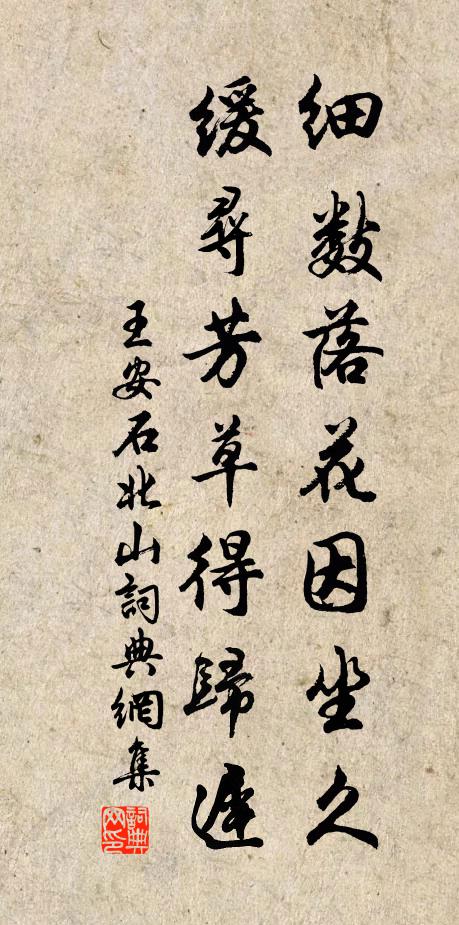 细数落花因坐久
缓寻芳草得歸遲
王安石北山詞典網集
詞典网印